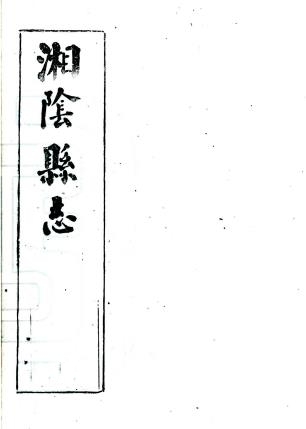 湘陰縣志